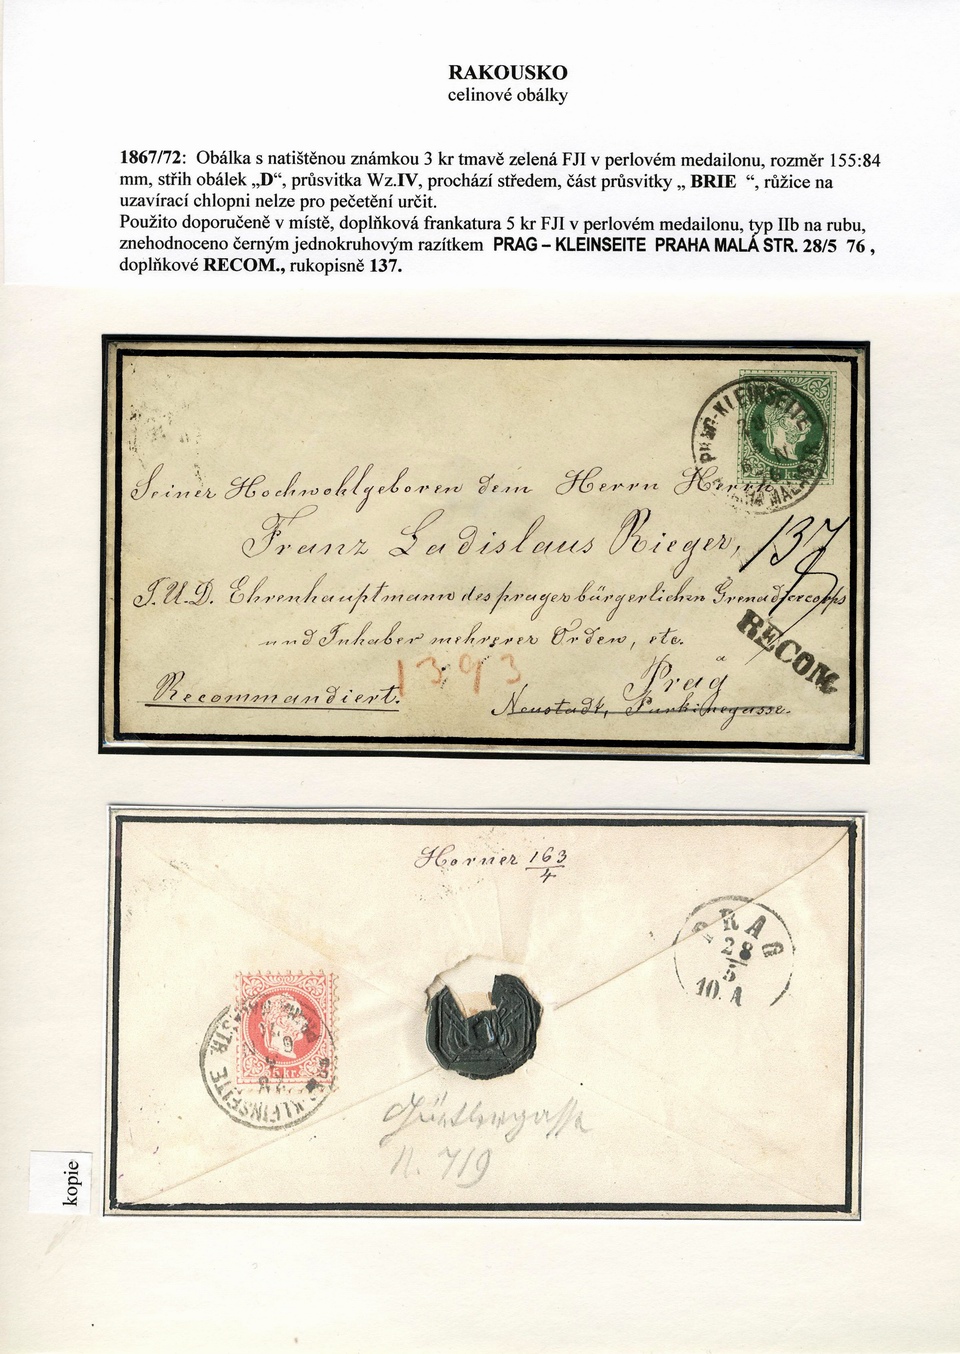 RAKOUSKO
celinové obálky
1867/72: Obálka s natištěnou známkou 3 kr tmavě zelená FJI v perlovém medailonu, rozměr 155:84
mm, střih obálek „D“, průsvitka Wz.IV, prochází středem, část průsvitky „ BRIE “, růžice na
uzavírací chlopni nelze pro pečetění určit.
Použito doporučeně v místě, doplňková frankatura 5 kr FJI v perlovém medailonu, typ IIb na rubu,
znehodnoceno černým jednokruhovým razítkem PRAG – KLEINSEITE PRAHA MALÁ STR. 28/5 76 ,
doplňkové RECOM., rukopisně 137.
PRAG-KLEINSEITE
Seiner Hochwohlgeboren dem Herrn Herrn
Franz Ladislaus Rieger,
137
J.U.D. Ehrenhauptmann des prager bürgerlichen Grenadiercorps
und Inhaber mehrerer Orden, etc.
RECOM.
1393
Prag
Recommandiert.
Neustadt, Purkinegasse.
Horner 163
4
PRAG
28
5
10. A
5 kr.
PRAG-KLEINSEITE
Gürtlergasse
N. 719
kopie